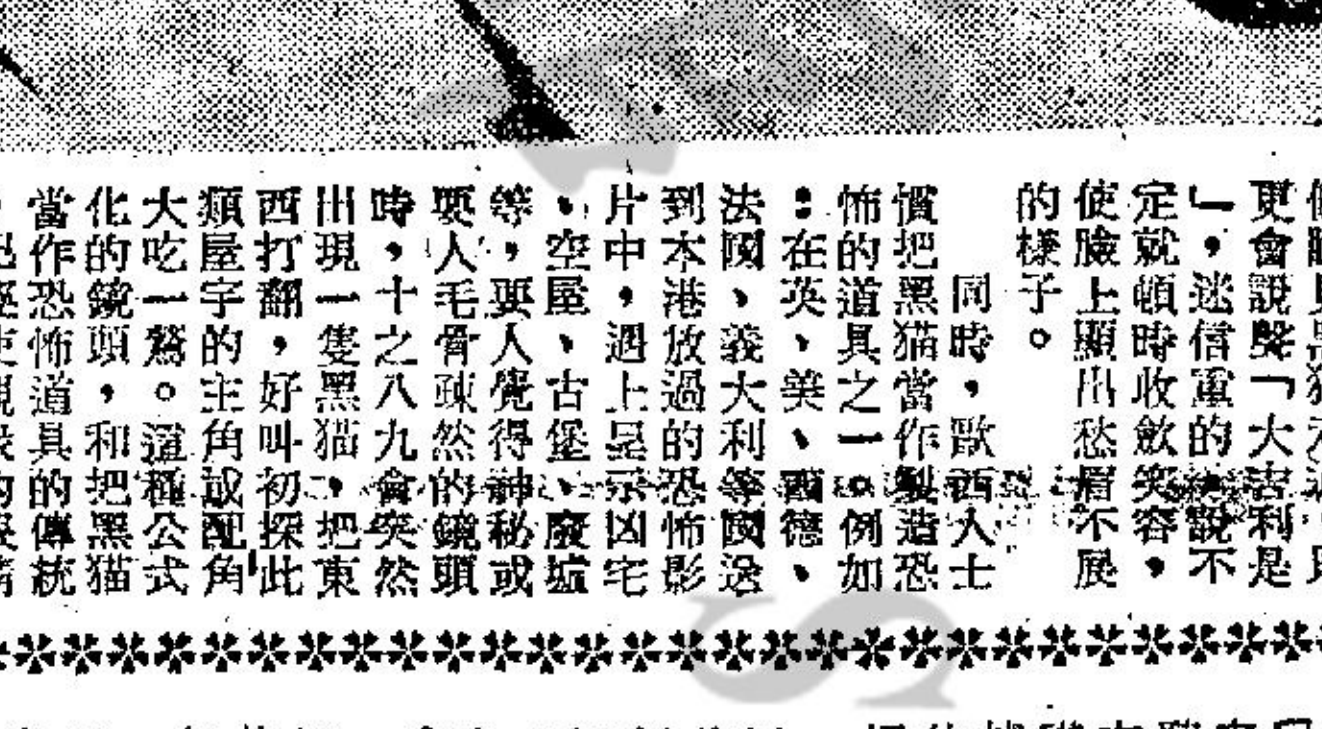 更會說聲「大吉利是
」，迷信重的說不
定就頓時收斂笑容，
使臉上顯出愁眉不展
的樣子。
同時，歐西人士
慣把黑猫當作製造恐
怖的道具之一。例如
：在英、美、德、
法國、義大利等國送
到本港放過的恐怖影
片中，遇上是示凶宅
、空屋、古堡、廢墟
等，要人覺得神秘或
要人毛骨悚然的鏡頭
時，十之八九會突然
出現一隻黑猫，把東
西打翻，好叫初探此
類屋宇的主角或配角
大吃一驚。這種公式
化的鏡頭，和把黑猫
當作恐怖道具的傳統